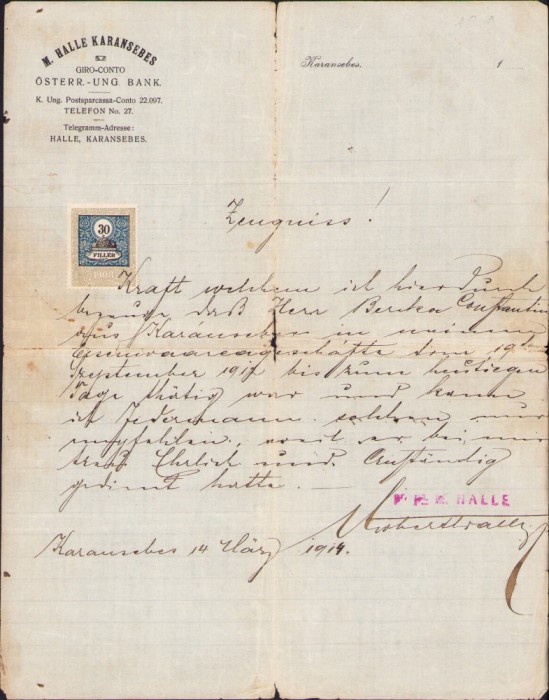 M. HALLE KARANSEBES
GIRO-CONTO
ÖSTERR.-UNG. BANK.
K. Ung. Postsparcassa-Conto 22.097.
TELEFON No. 27.
Telegramm-Adresse:
HALLE, KARANSEBES.
Karansebes, 1
30
FILLÉR
1908
Zeugniss!
Kraft welchem ich hier Durch
bezeuge daß Herr Berka Constantin
aus Karánsebes in meinem
vom 19ten
Szeptember 1912 bis zum heutiegen
Tage thätig war und kann
ich Jedermann solchen nur
empfehlen, weil er bei mir
treu Ehrlich und Anständig
gedient hatte. —
HALLE
Karansebes 14 März 1914.